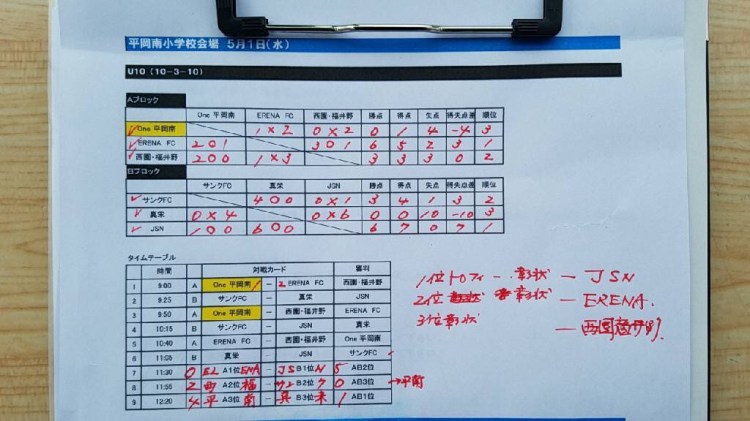 平岡南小学校会場 5月1日(水)
U10 (10-3-10)
Aブロック
One 平岡南 ERENA FC 西園・福井野 勝点 得点 失点 得失点差 順位
One 平岡南 1×2 0×2 0 1 4 -4 3
ERENA FC 2○1 3○1 6 5 2 3 1
西園・福井野 2○0 1×3 3 3 3 0 2
Bブロック
サンクFC 真栄 JSN 勝点 得点 失点 得失点差 順位
サンクFC 4○0 0×1 3 4 1 3 2
真栄 0×4 0×6 0 0 10 -10 3
JSN 1○0 6○0 6 7 0 7 1
タイムテーブル
時間 対戦カード 審判
1 9:00 A One 平岡南 1 - 2 ERENA FC 西園・福井野
2 9:25 B サンクFC - 真栄 JSN
3 9:50 A One 平岡南 - 西園・福井野 ERENA FC
4 10:15 B サンクFC - JSN 真栄
5 10:40 A ERENA FC - 西園・福井野 One 平岡南
6 11:05 B 真栄 - JSN サンクFC
7 11:30 0 A1位 - JS B1位 N 5 AB2位
8 11:55 2 A2位 福 - サン B2位 ク 0 AB3位 →平南
9 12:20 4 平 A3位 南 - 真 B3位 栄 1 AB1位
1位トロフィー、彰状 - JSN
2位 彰状 - ERENA.
3位彰状 - 西園